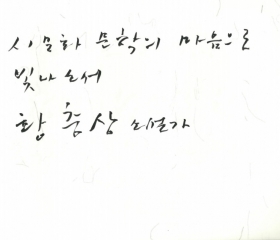 시 문화 문학의 마음으로
빛나소서
황충상 소설가